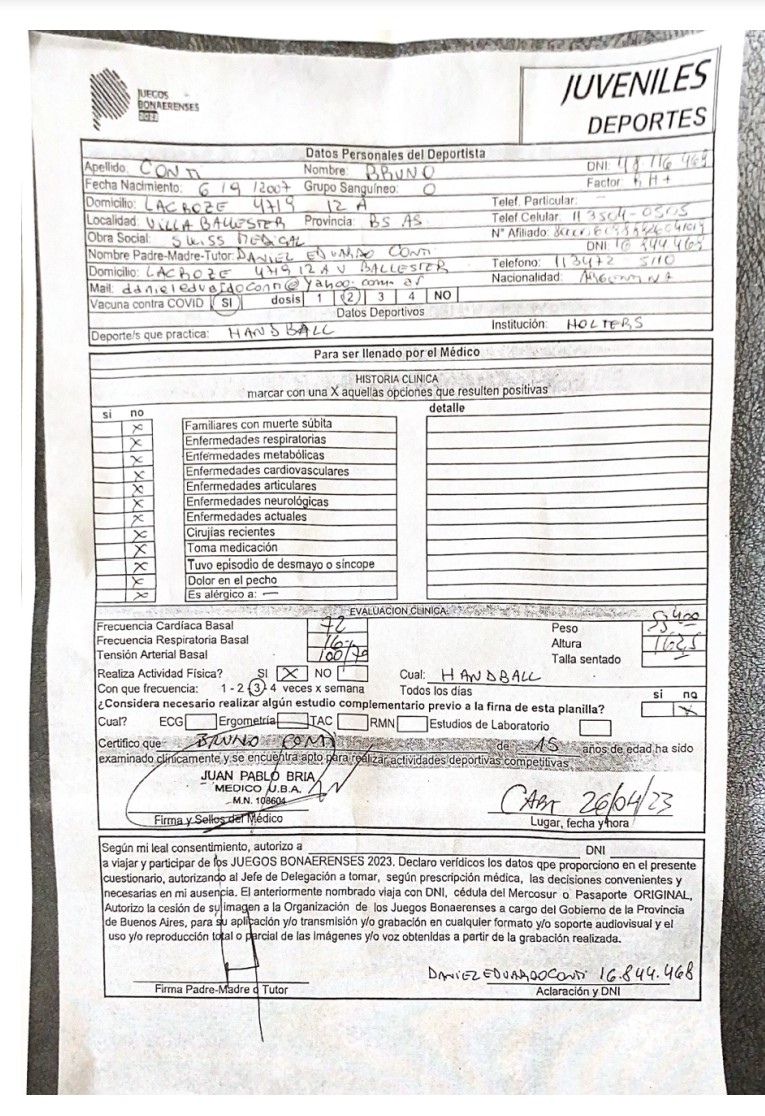 JUEGOS
BONAERENSES
2023
JUVENILES
DEPORTES
Datos Personales del Deportista
Apellido: CONTI Nombre: BRUNO DNI: 48 116 469
Fecha Nacimiento: 6 / 9 / 2007 Grupo Sanguíneo: O Factor: RH+
Domicilio: LACROZE 4719 12 A Telef. Particular:
Localidad: VILLA BALLESTER Provincia: BS AS. Telef Celular: 11 3504-0505
Obra Social: SWISS MEDICAL N° Afiliado:
Nombre Padre-Madre-Tutor: DANIEL EDUARDO CONTI DNI: 16 844 468
Domicilio: LACROZE 4719 12 A V BALLESTER Telefono: 113472 5110
Mail: danieleduardoconti@yahoo.com.ar Nacionalidad: ARGENTINA
Vacuna contra COVID SI dosis 1 2 3 4 NO
Datos Deportivos
Deporte/s que practica: HANDBALL Institución: HOLTERS
Para ser llenado por el Médico
HISTORIA CLINICA
marcar con una X aquellas opciones que resulten positivas
si no detalle
X Familiares con muerte súbita
X Enfermedades respiratorias
X Enfermedades metabólicas
X Enfermedades cardiovasculares
X Enfermedades articulares
X Enfermedades neurológicas
X Enfermedades actuales
X Cirujías recientes
X Toma medicación
X Tuvo episodio de desmayo o síncope
X Dolor en el pecho
X Es alérgico a: —
EVALUACION CLINICA:
Frecuencia Cardíaca Basal 72 Peso 53,400
Frecuencia Respiratoria Basal 16 Altura 162,5
Tensión Arterial Basal 100/70 Talla sentado
Realiza Actividad Física? SI X NO Cual: HANDBALL
Con que frecuencia: 1 - 2 - 3 - 4 veces x semana Todos los días
¿Considera necesario realizar algún estudio complementario previo a la firma de esta planilla? si no X
Cual? ECG Ergometría TAC RMN Estudios de Laboratorio
Certifico que BRUNO CONTI de 15 años de edad ha sido
examinado clínicamente y se encuentra apto para realizar actividades deportivas competitivas
JUAN PABLO BRIA
MEDICO U.B.A.
M.N. 108604
CABA 26/04/23
Firma y Sellos del Médico Lugar, fecha y hora
Según mi leal consentimiento, autorizo a DNI
a viajar y participar de los JUEGOS BONAERENSES 2023. Declaro verídicos los datos que proporciono en el presente
cuestionario, autorizando al Jefe de Delegación a tomar, según prescripción médica, las decisiones convenientes y
necesarias en mi ausencia. El anteriormente nombrado viaja con DNI, cédula del Mercosur o Pasaporte ORIGINAL,
Autorizo la cesión de su imagen a la Organización de los Juegos Bonaerenses a cargo del Gobierno de la Provincia
de Buenos Aires, para su aplicación y/o transmisión y/o grabación en cualquier formato y/o soporte audiovisual y el
uso y/o reproducción total o parcial de las Imágenes y/o voz obtenidas a partir de la grabación realizada.
DANIEL EDUARDO CONTI 16.844.468
Firma Padre-Madre o Tutor Aclaración y DNI